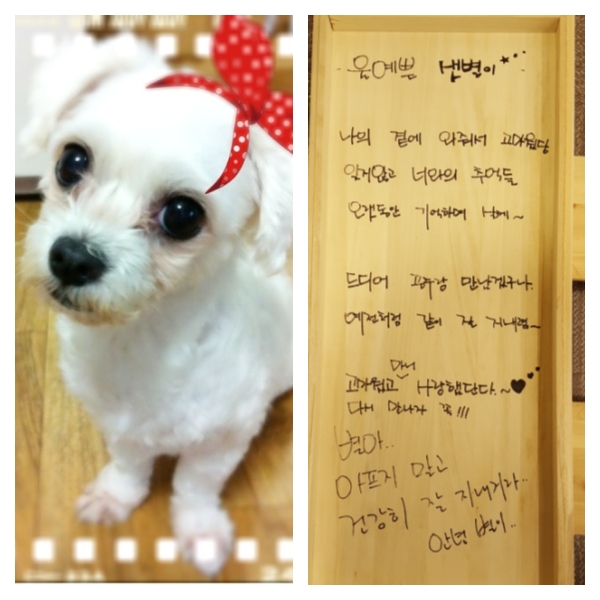 음예쁜 샛별이
나의 곁에 와줘서 고마웠당
잊지않고 너와의 추억들
오랫동안 기억하며 살께~
드디어 만난겠구나.
예전처럼 같이 잘 지내렴~
고마웠고 많이 사랑했단다.~♥
다시 만나자 꼭!!!
별아..
아프지 말고
건강히 잘 지내거라..
안녕 별이..